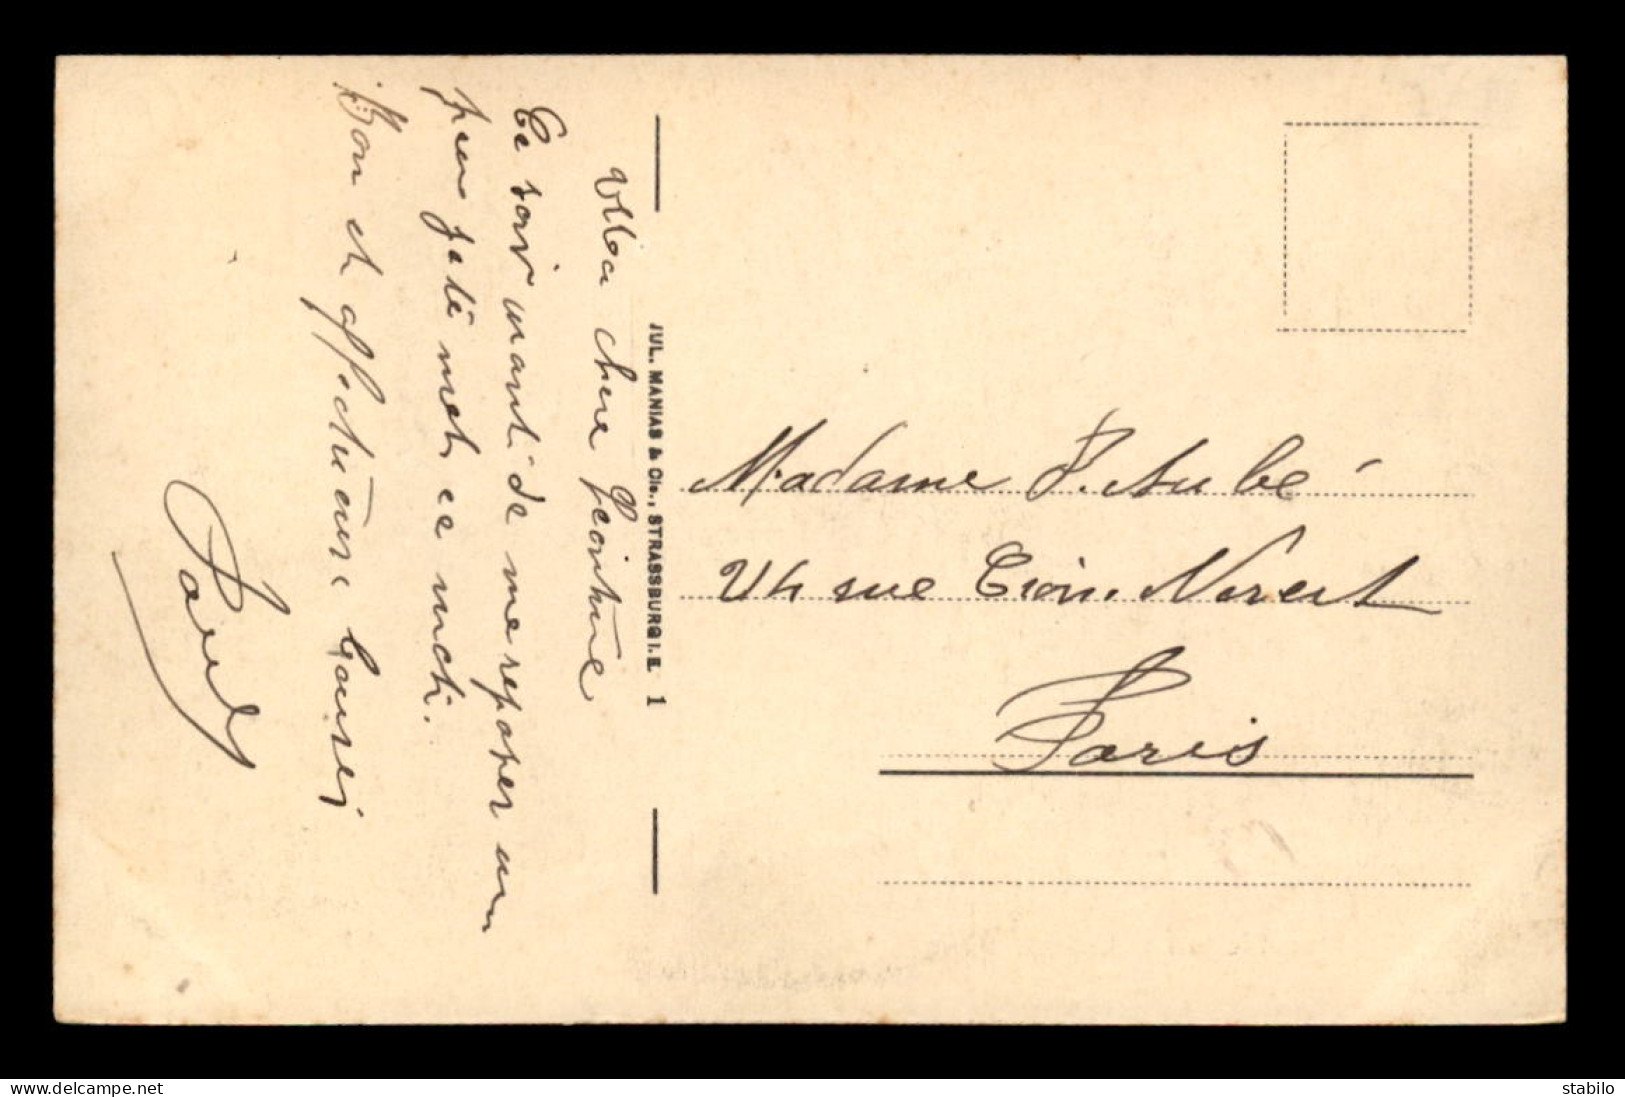 Ma chère
Ce soir avant de me reposer un
peu je te mets ce mot.
Bon et affectueux baiser
JUL. MANIAS & Cie., STRASSBURG I. E. 1
Madame P. Aubé
24 rue Croix Nivert
Paris
delcampe.net
stabilo